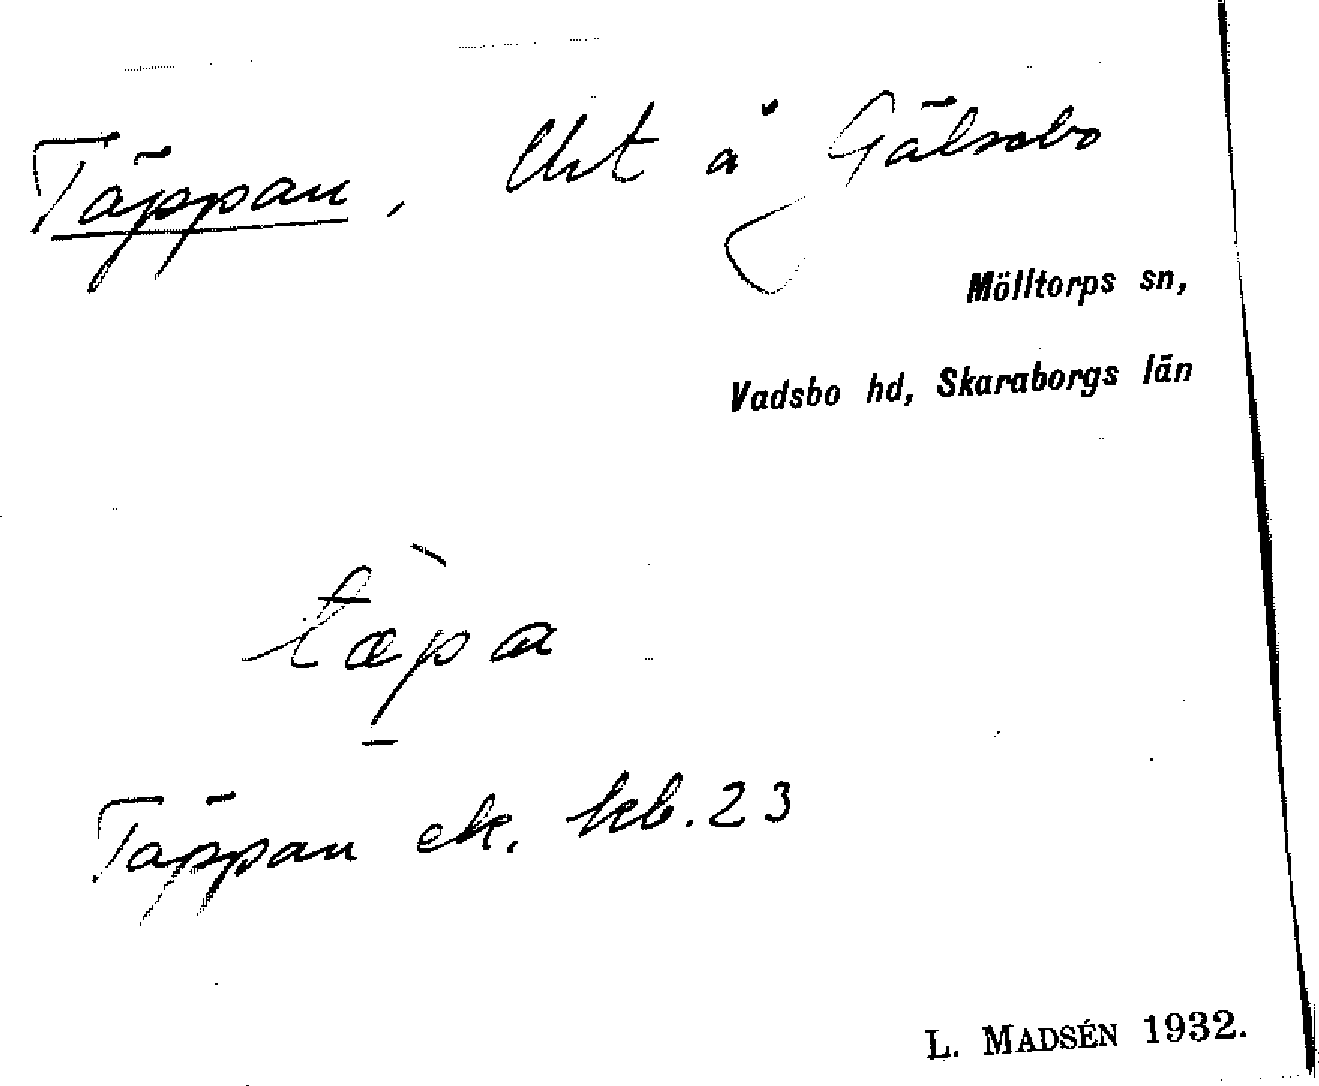 Täppan, Urt å Gälsebo
Mölltorps sn,
Vadsbo hd, Skaraborgs län
tæ̀pa
Täppan ek. kb. 23
L. MADSÉN 1932.